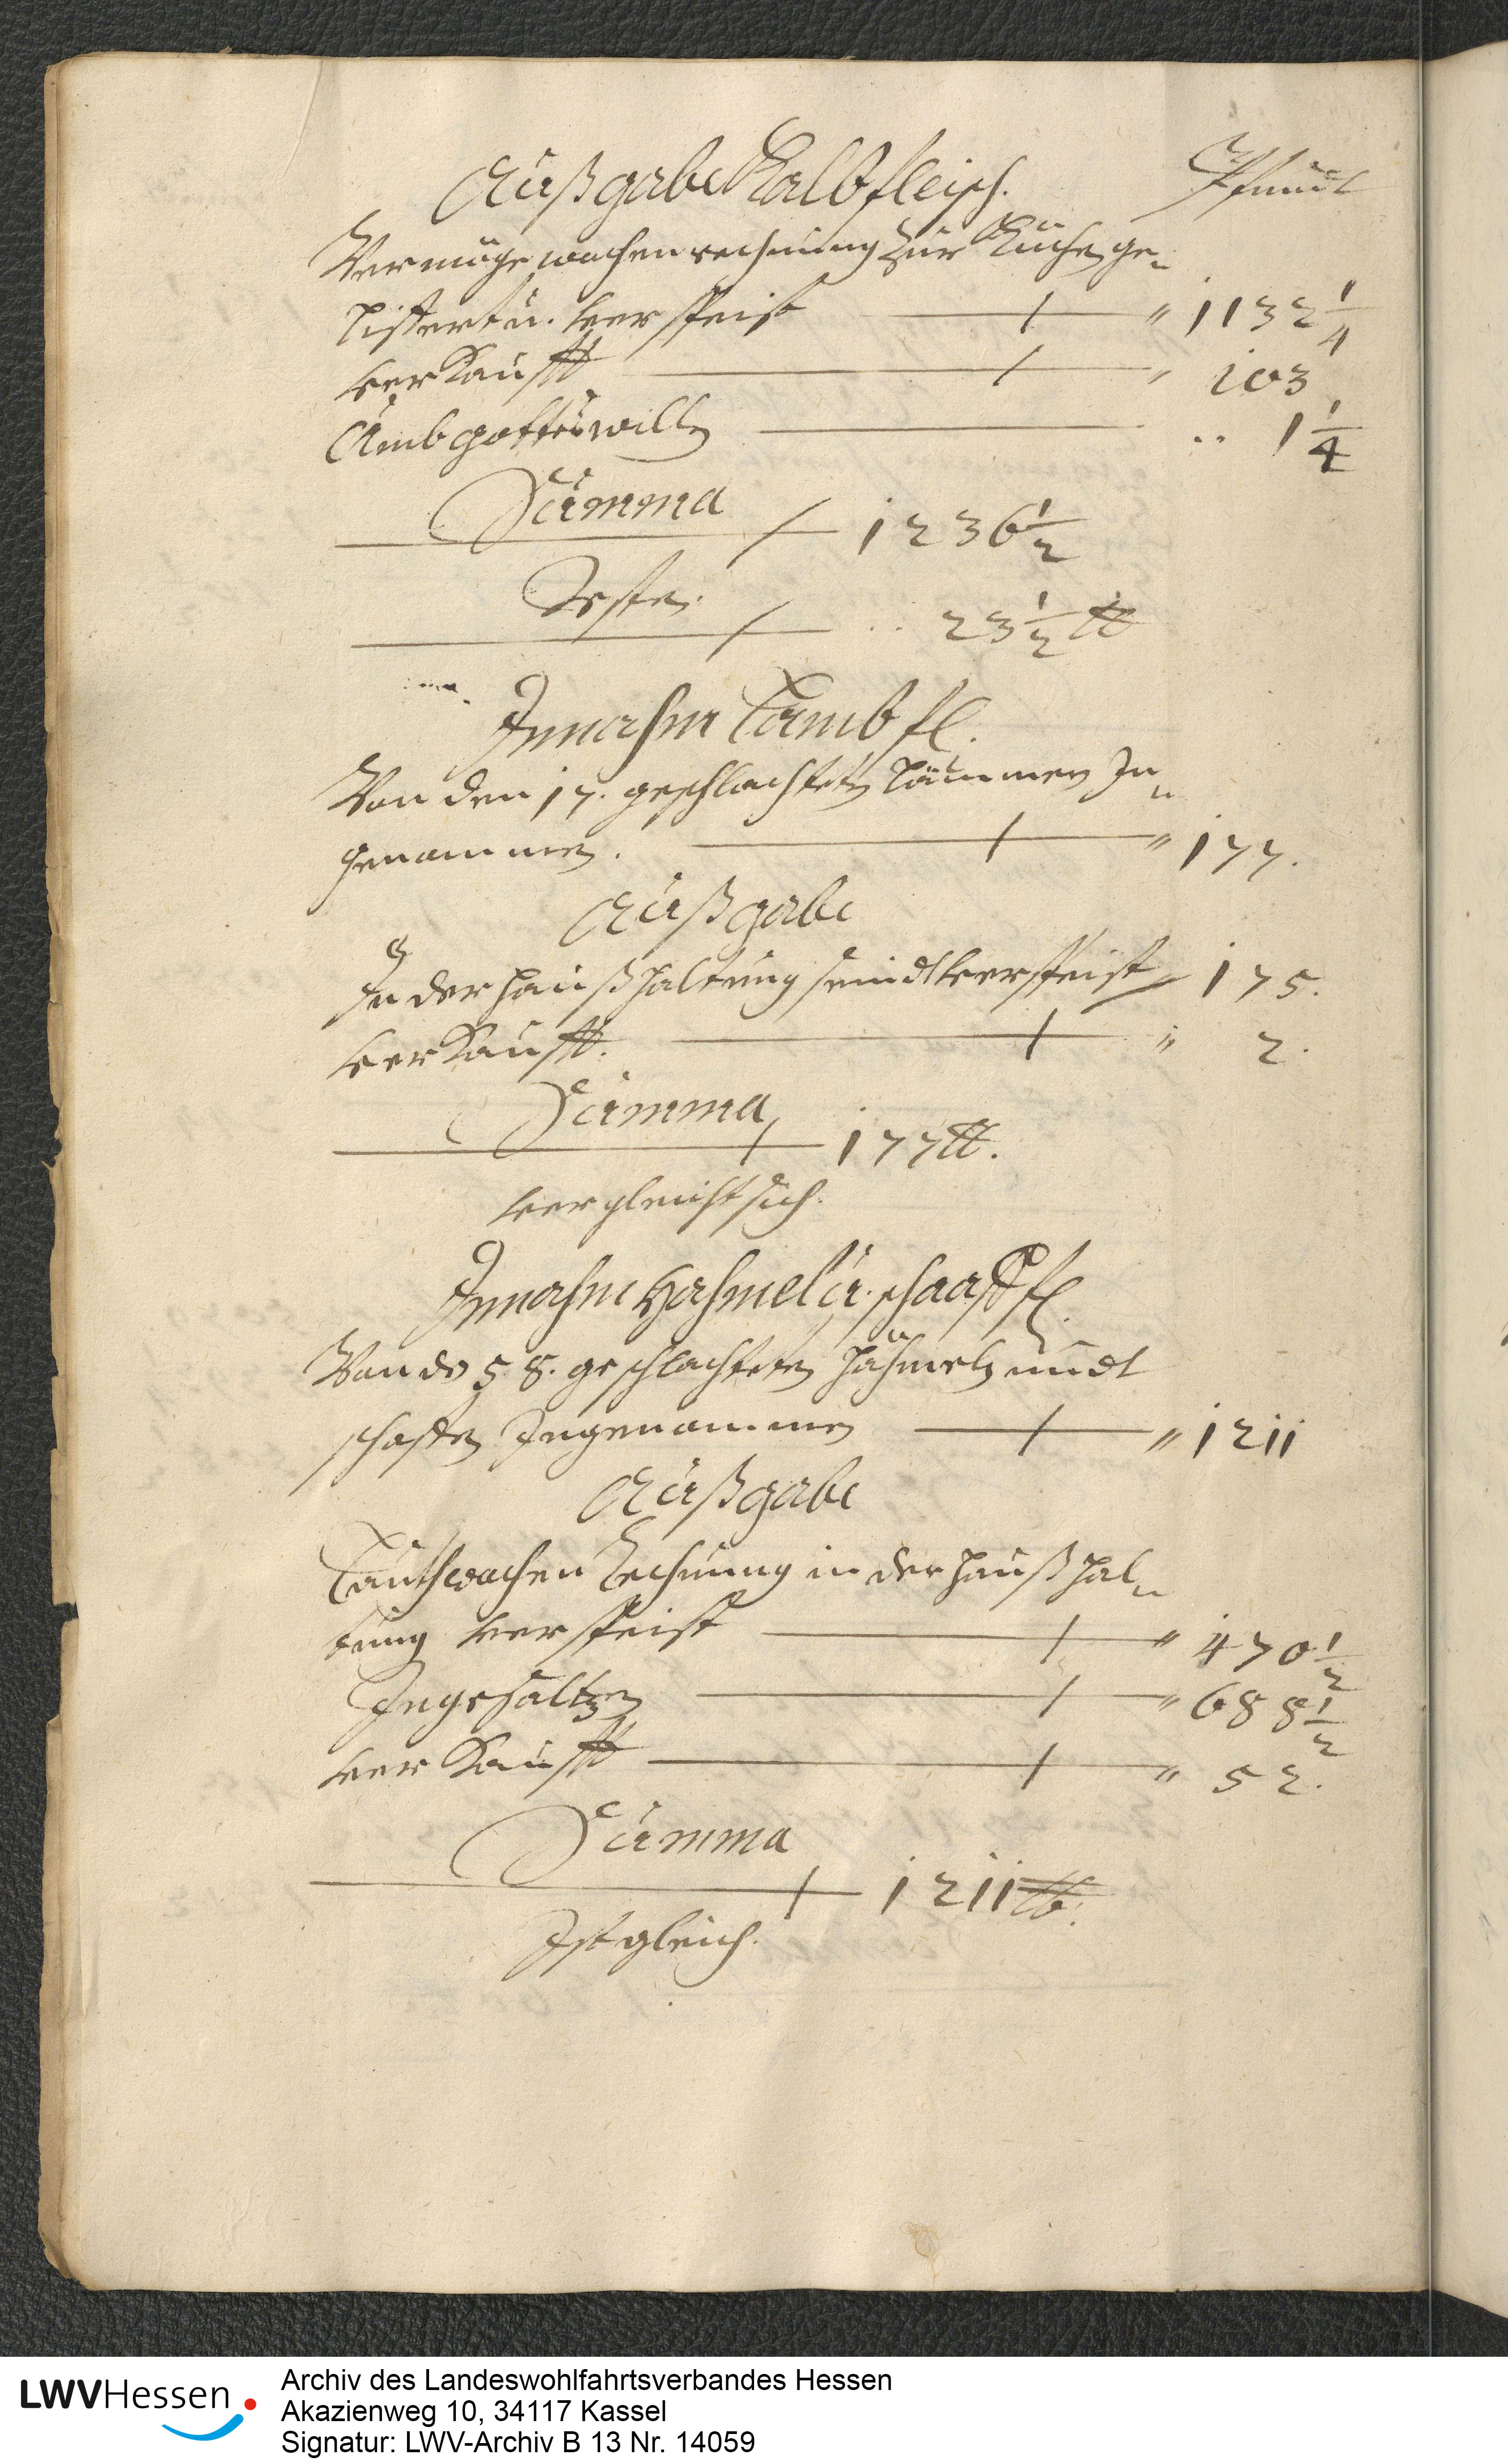 Außgabe Kalbfleisch. Pfundt
Vermöge wochenrechnung zur Küchen ge-
liffert u. verspeist 1132 1/4
verkaufft 103
Umb gottes willen 1 1/4
Summa 1236 1/2
Resten. 23 1/2 ℔
Innahm Lamb fl.
Von den 17. geschlachteten Lämmern In-
genommen. 177.
Außgabe
In der haußhaltung seindt verspeist 175.
verkaufft. 2.
Summa 177 ℔.
vergleicht sich.
Innahm Hahmel u. schaaff fl.
Von do 58. geschlachteten hähmeln undt
schaffen Ingenommen 1211
Außgabe
Lauth wochen Rechnung in der haußhal-
tung verspeist 470 1/2
Ingesaltzen 688 1/2
verkaufft 52.
Summa 1211 ℔.
Ist gleich.
LWVHessen
Archiv des Landeswohlfahrtsverbandes Hessen
Akazienweg 10, 34117 Kassel
Signatur: LWV-Archiv B 13 Nr. 14059